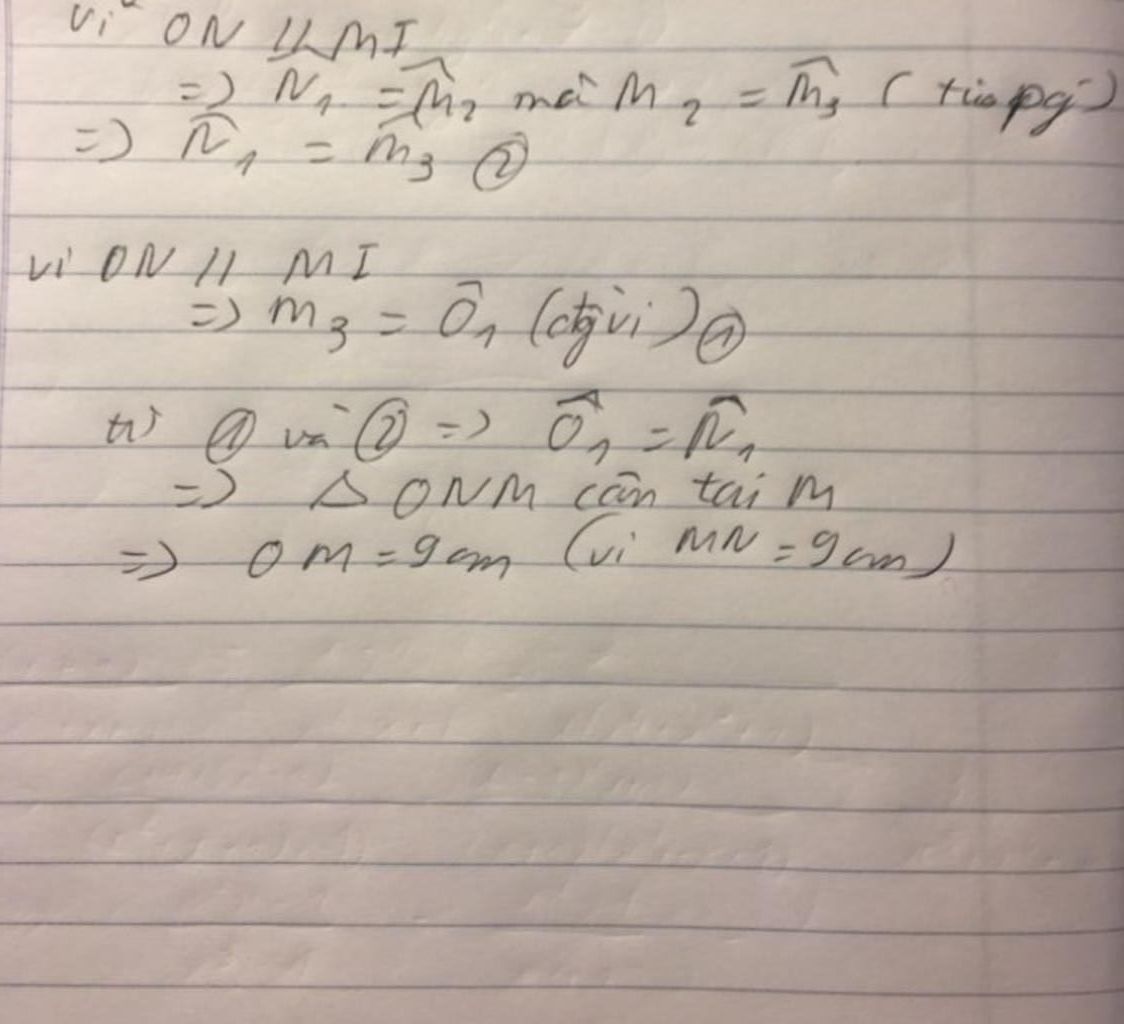 vì ON // MI
=> N̂₁ = M̂₂ mà M₂ = M̂₃ ( tia pg )
=> N̂₁ = M̂₃ ②
vì ON // MI
=> M₃ = Ô₁ (đg vị) ①
từ ① và ② => Ô₁ = N̂₁
=> Δ ONM cân tại M
=> OM = 9cm (vì MN = 9cm)